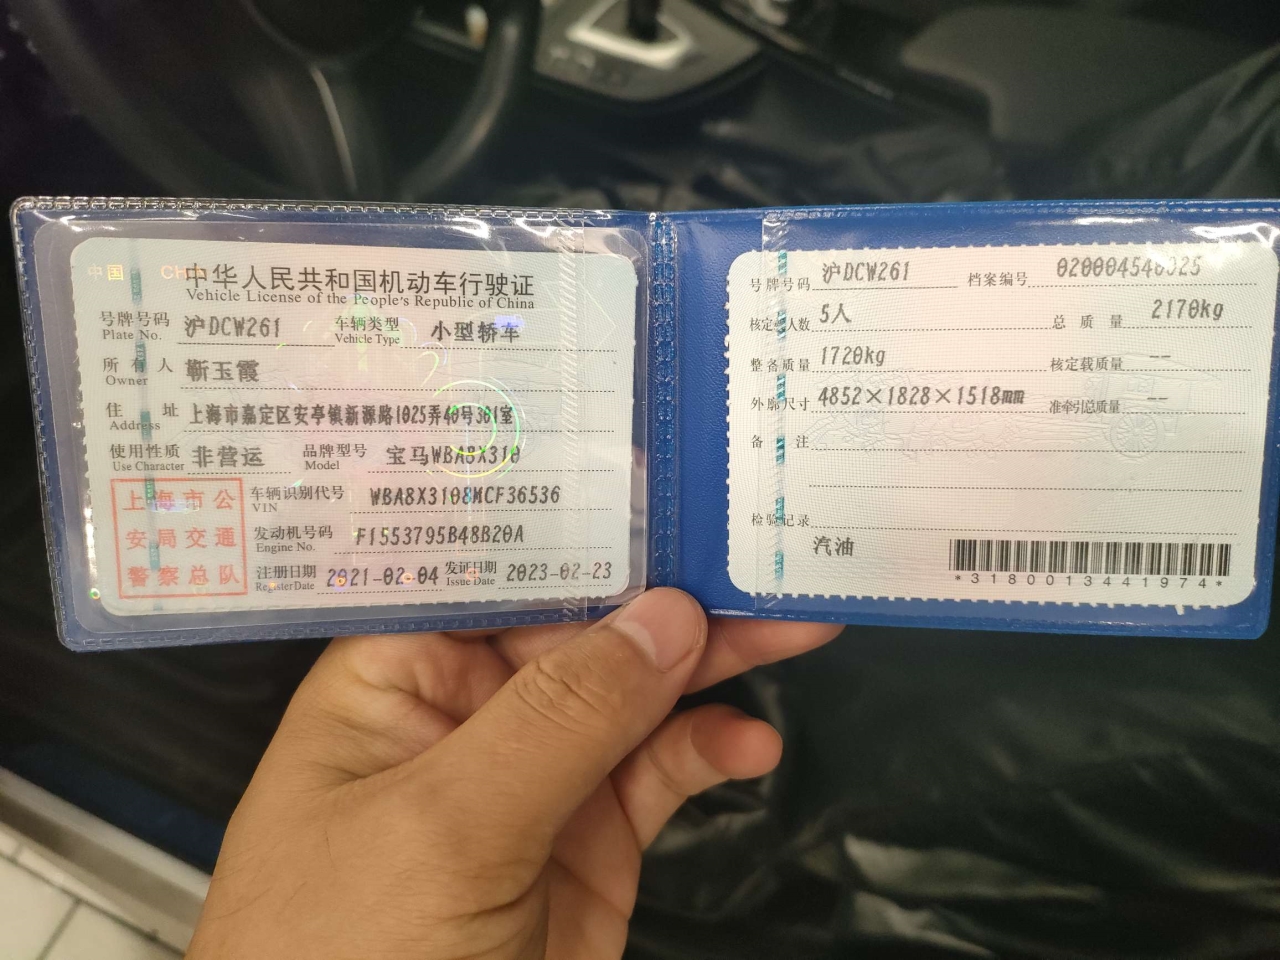 中国 CHINA
中华人民共和国机动车行驶证
Vehicle License of the People's Republic of China
号牌号码 沪DCW261 车辆类型 小型轿车
Plate No. Vehicle Type
所有人 靳玉霞
Owner
住址 上海市嘉定区安亭镇新源路1025弄40号301室
Address
使用性质 非营运 品牌型号 宝马WBA8X310
Use Character Model
上海市公
安局交通
警察总队
车辆识别代号 WBA8X3108MCF36536
VIN
发动机号码 F1553795B48B20A
Engine No.
注册日期 2021-02-04 发证日期 2023-02-23
Register Date Issue Date
号牌号码 沪DCW261 档案编号
核定载人数 5人 总质量 2170kg
整备质量 1720kg 核定载质量 --
外廓尺寸 4852×1828×1518mm 准牵引总质量 --
备注
检验记录
汽油
*3180013441974*